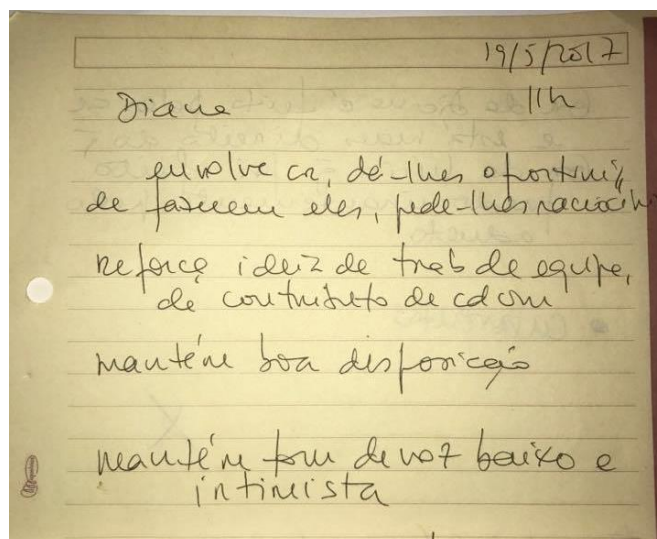 19/5/2017
Diane 11h
envolve cr, dá-lhes oportuni//
de fazerem eles, pede-lhes
reforça ideia de trab de equipe,
de contributo de cd um
mantém boa disposição
mantém tom de voz baixo e
intimista